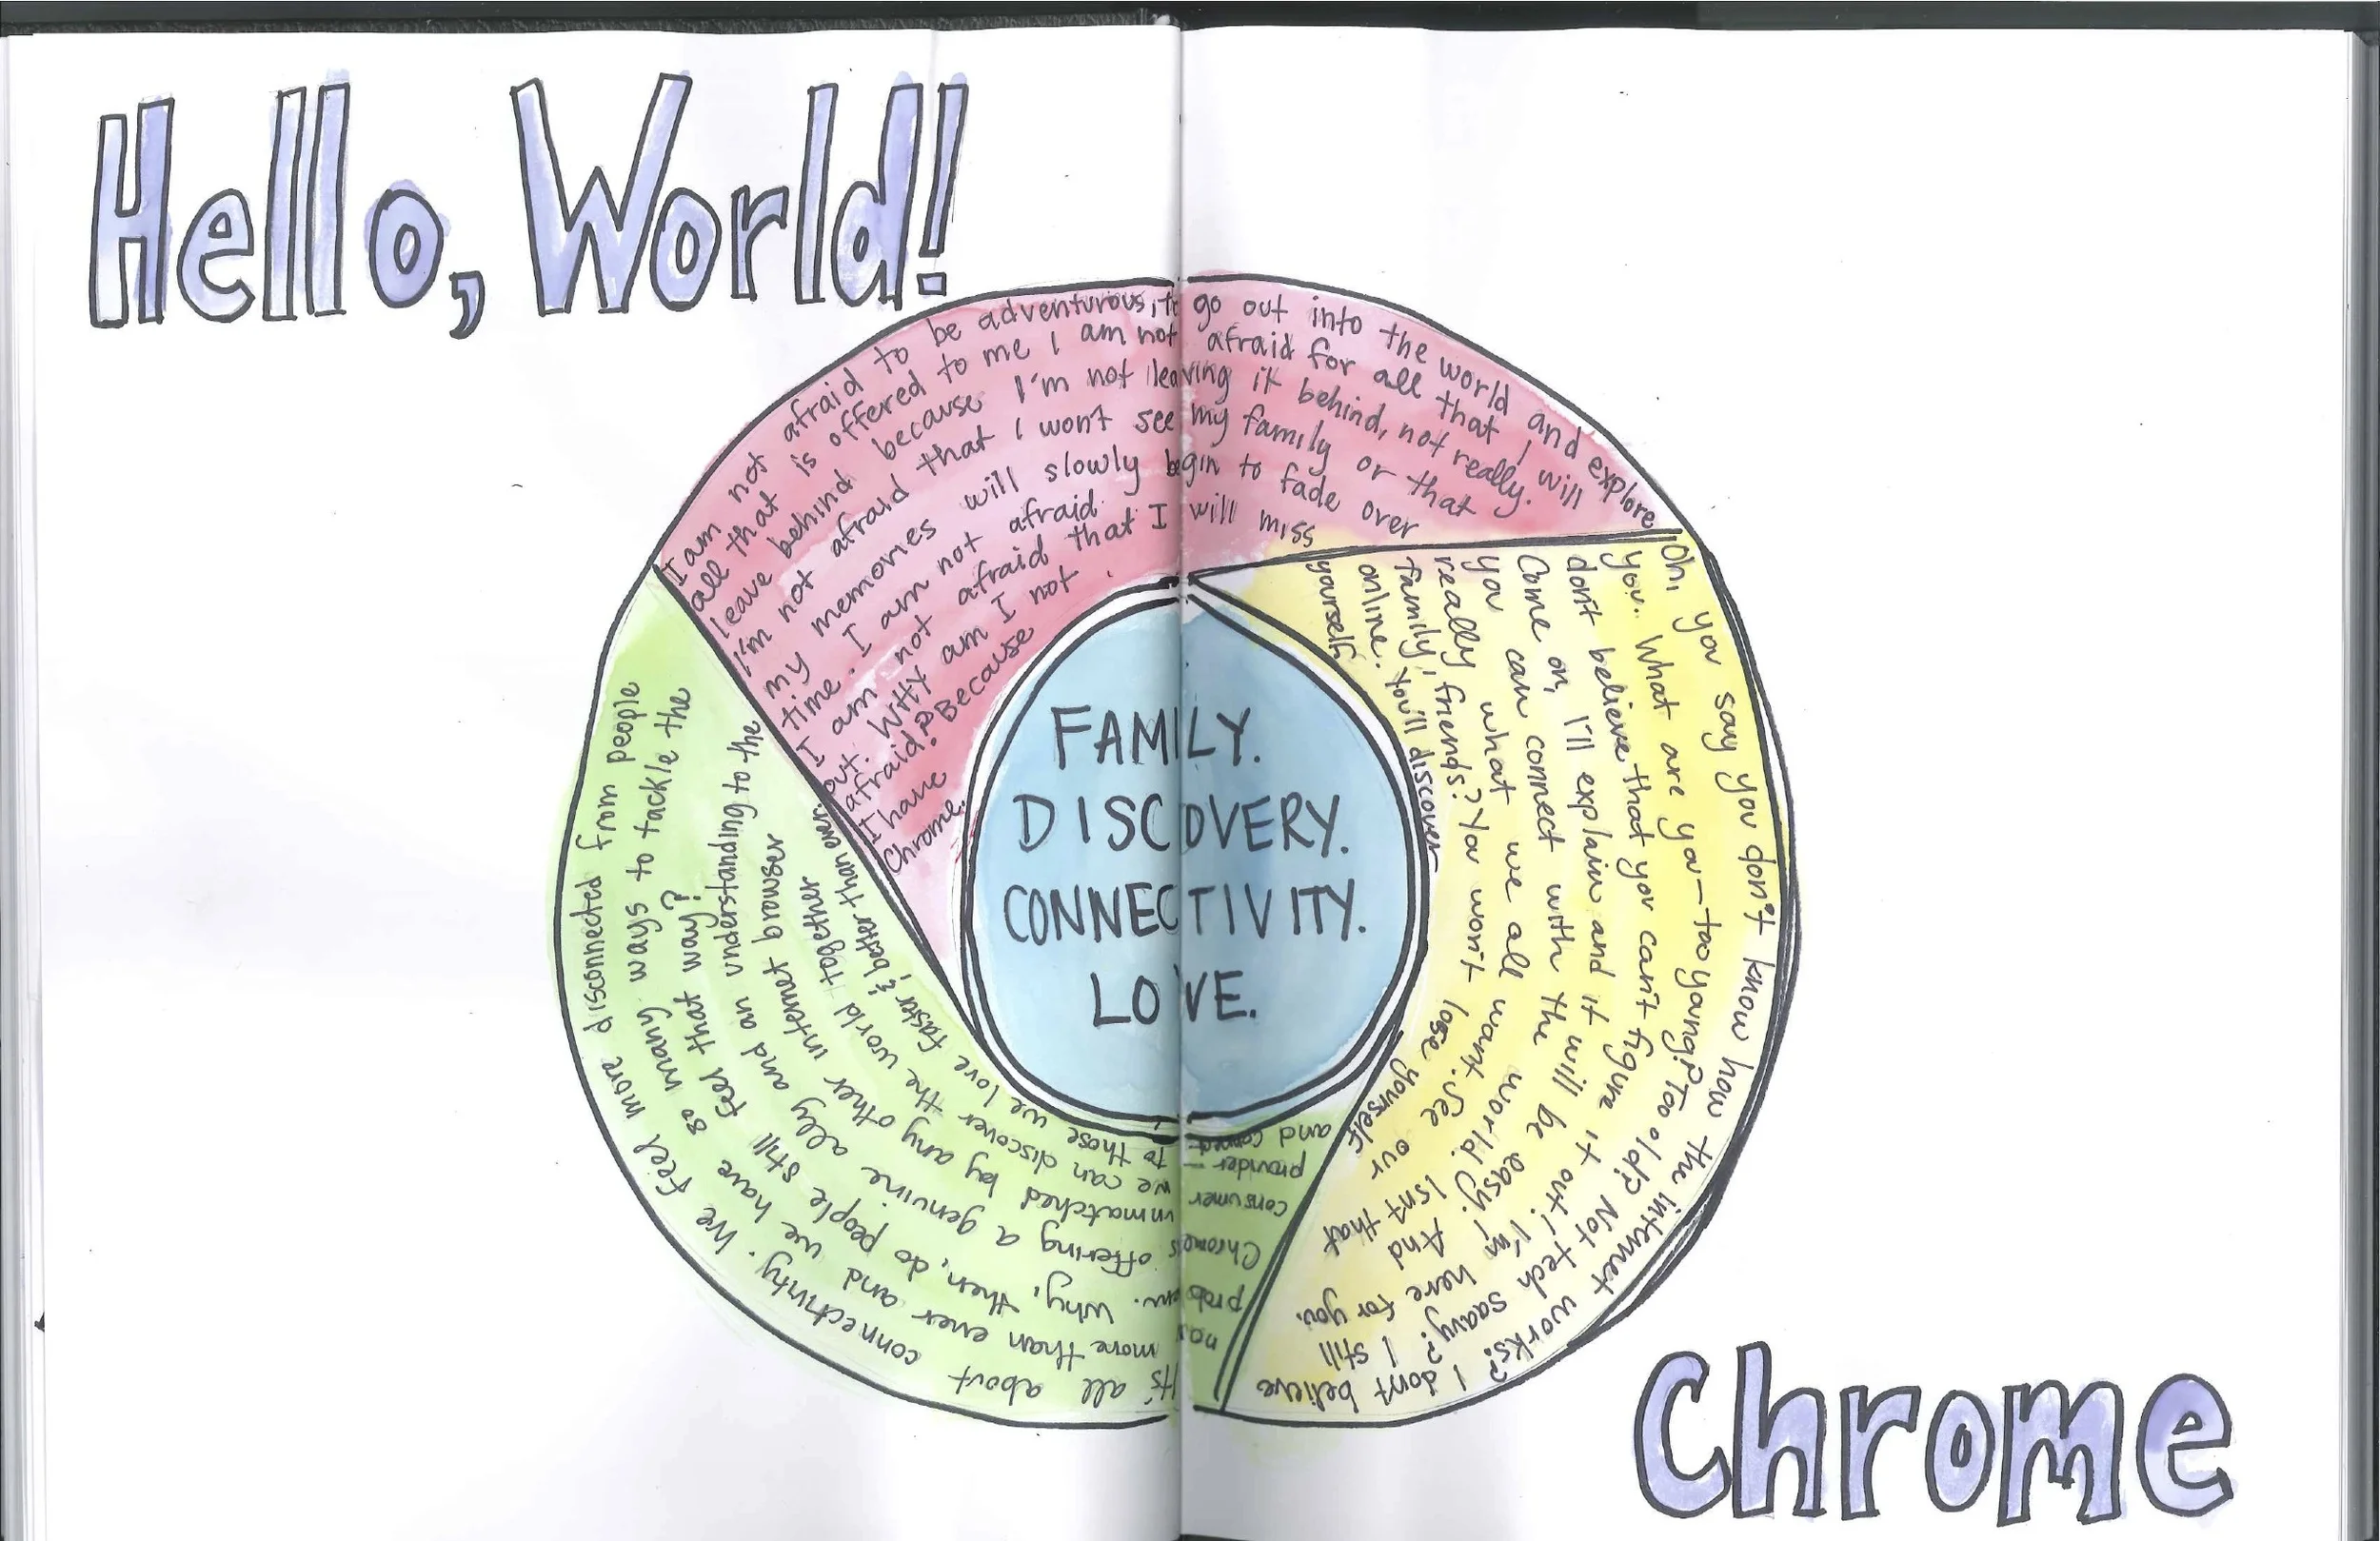 Hello, World!
I am not afraid to be adventurous, to go out into the world and explore
all that is offered to me I am not afraid for all that I will
leave behind because I'm not leaving it behind, not really.
I'm not afraid that I won't see my family or that
my memories will slowly begin to fade over
time. I am not afraid.
I am not afraid that I will miss
out. WHY am I not
afraid? Because
I have
Chrome.
Oh, you say you don't know how the internet works? I don't believe
you. What are you—too young? Too old? Not tech saavy? I still
don't believe that you can't figure it out! I'm here for you.
Come on, I'll explain and it will be easy! And
you can connect with the world! Isn't that
really what we all want. See our
family, friends? You won't lose yourself
online. You'll discover
yourself.
It's all about connectivity. We feel more disconnected from people
now more than ever and we have so many ways to tackle the
problem. Why, then, do people still feel that way?
Chrome's offering a genuine ally and an understanding to the
consumer unmatched by any other internet browser
provider — we can discover the world together
and connect to those we love faster & better than ever.
FAMILY.
DISCOVERY.
CONNECTIVITY.
LOVE.
Chrome